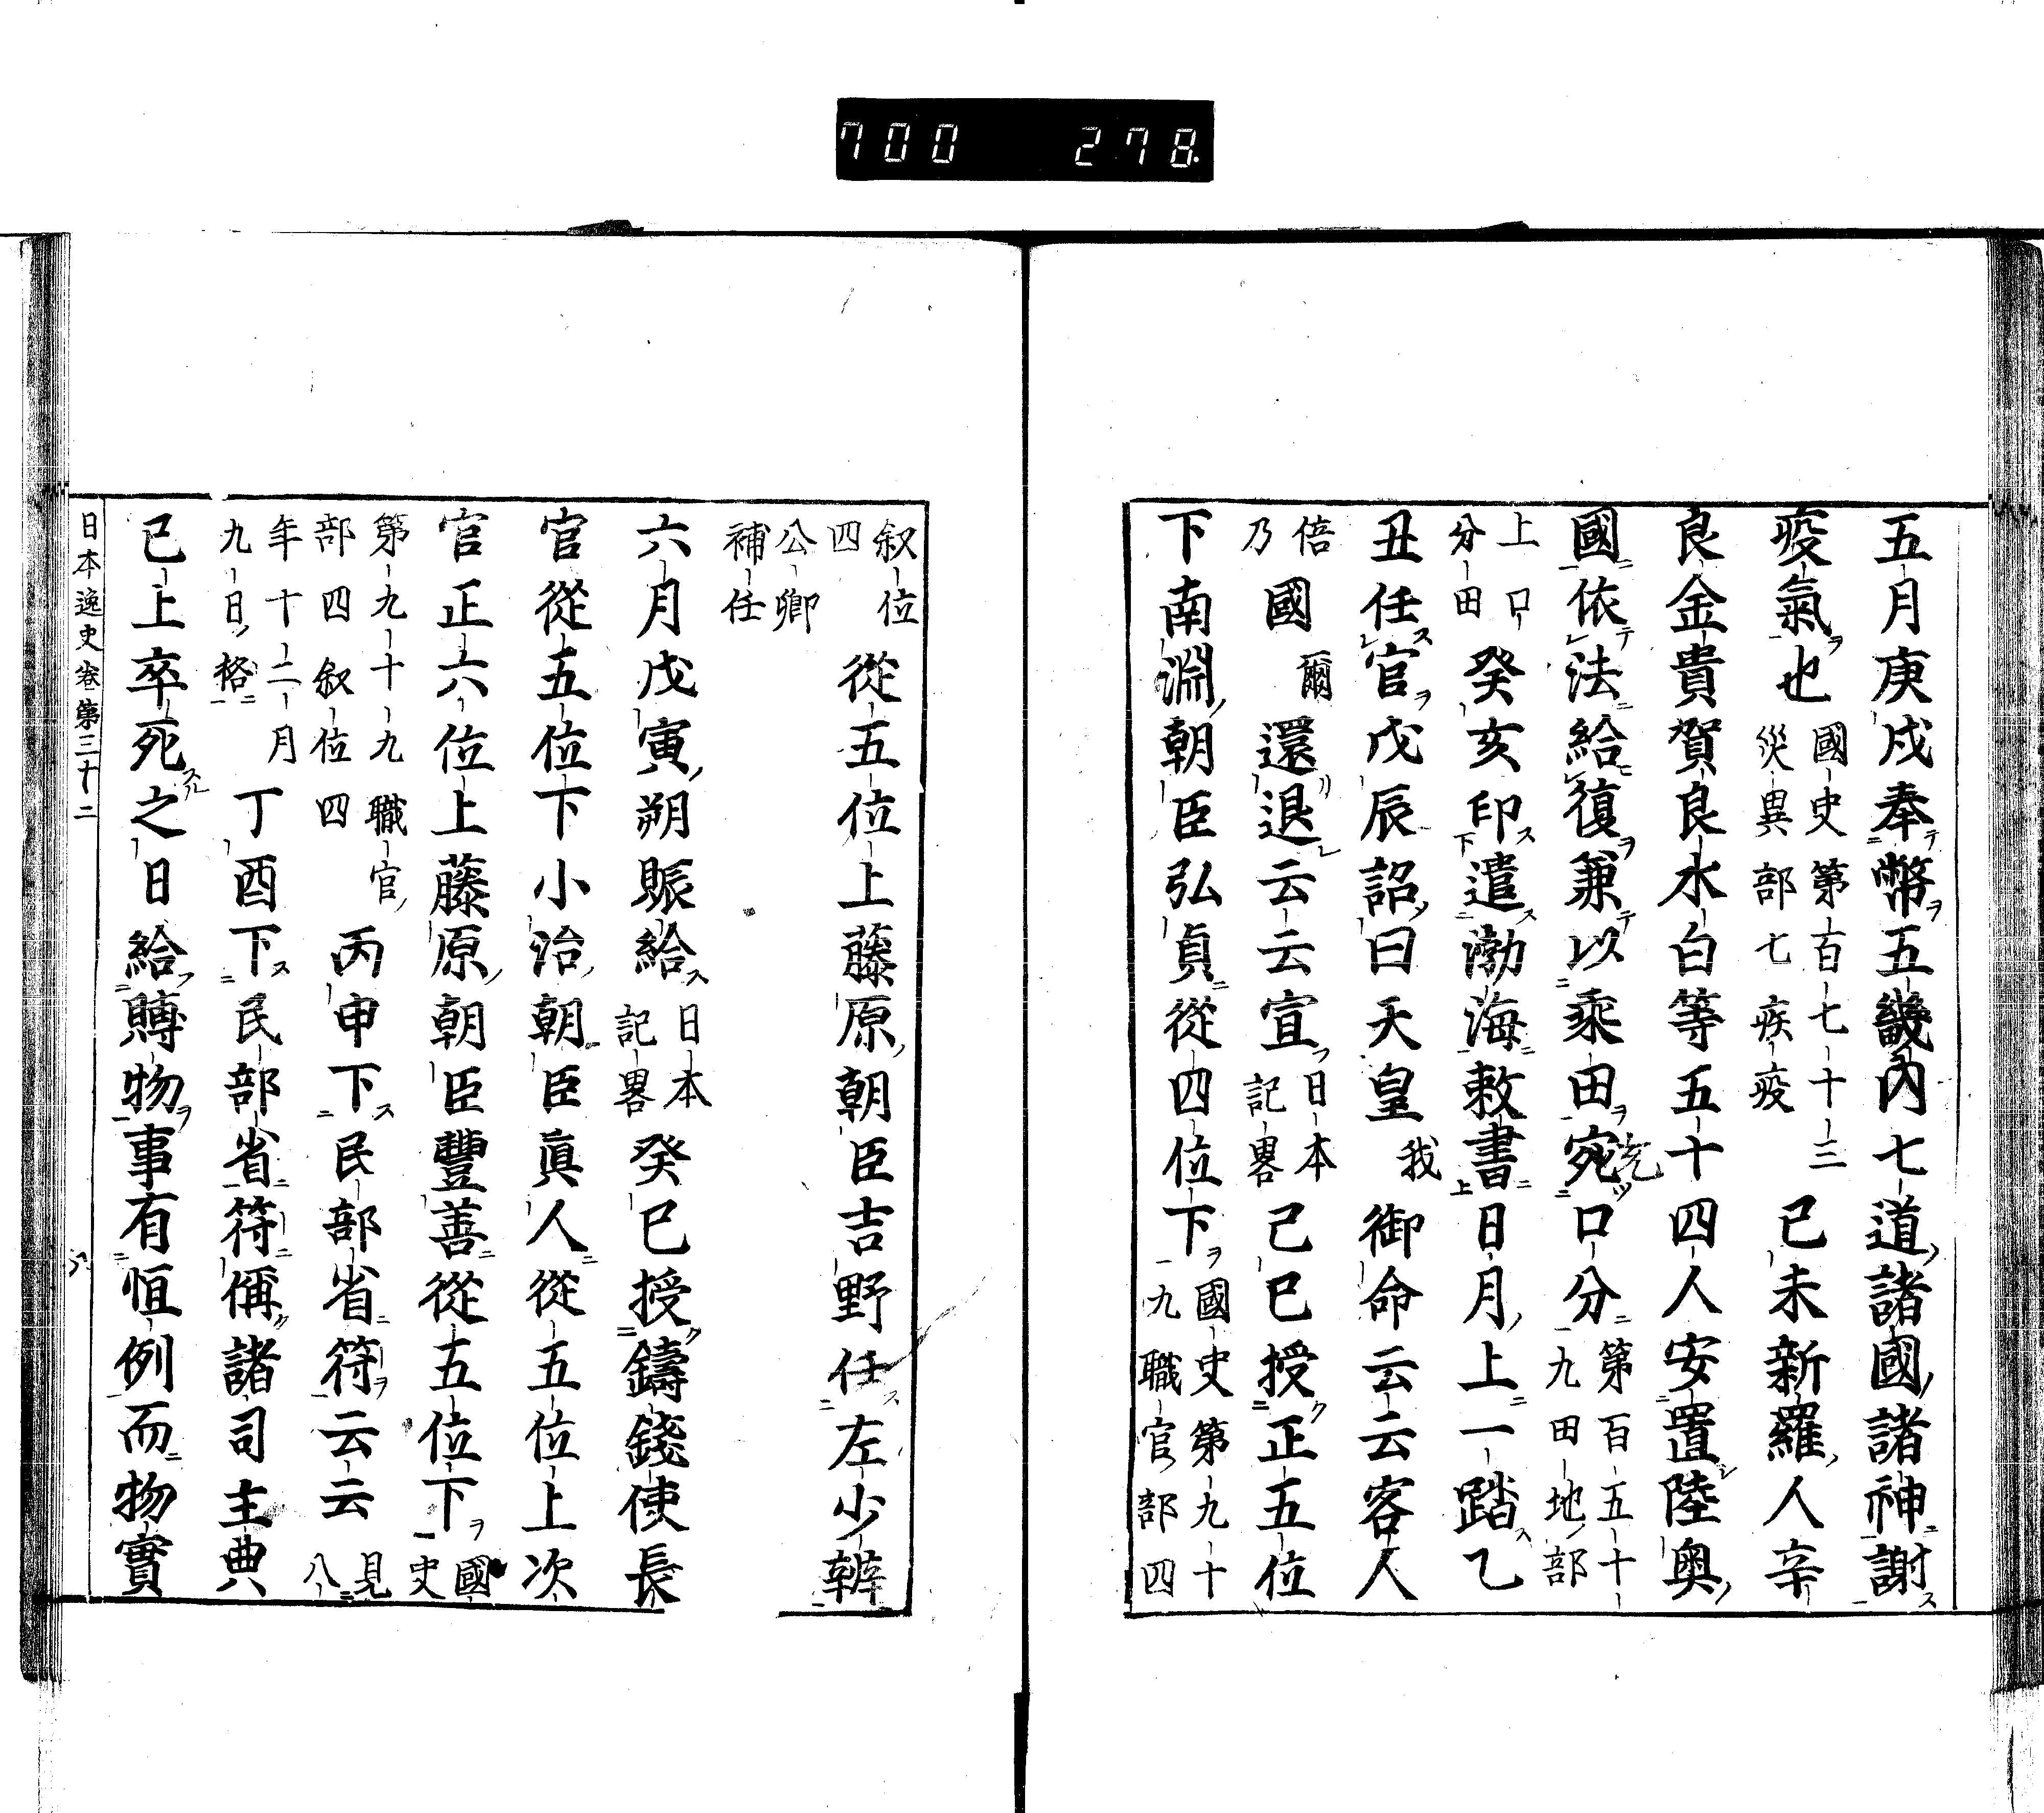 700 278
五月庚戌奉幣五畿內七道諸國諸神謝
疫氣也國史第百七十三災異部七疾疫己未新羅人辛
良金貴賀良水白等五十四人安置陸奥
國依法給復兼以乘田宛充口分第百五十九田地部
上口分田癸亥印遣渤海敕書日月上一踏乙
丑任官戊辰詔曰天皇我御命云云客人
倍乃國爾還退云云宣日本記畧己巳授正五位
下南淵朝臣弘貞從四位下國史第九十九職官部四
叙位四公卿補任從五位上藤原朝臣吉野任左少辨
六月戊寅朔賑給日本記畧癸巳授鑄錢使長
官從五位下小治朝臣眞人從五位上次
官正六位上藤原朝臣豐善從五位下國史
第九十九職官部四叙位四丙申下民部省符云云見八
年十二月九日格丁酉下民部省符偁諸司主典
已上卒死之日給賻物事有恒例而物實
日本逸史卷第三十二